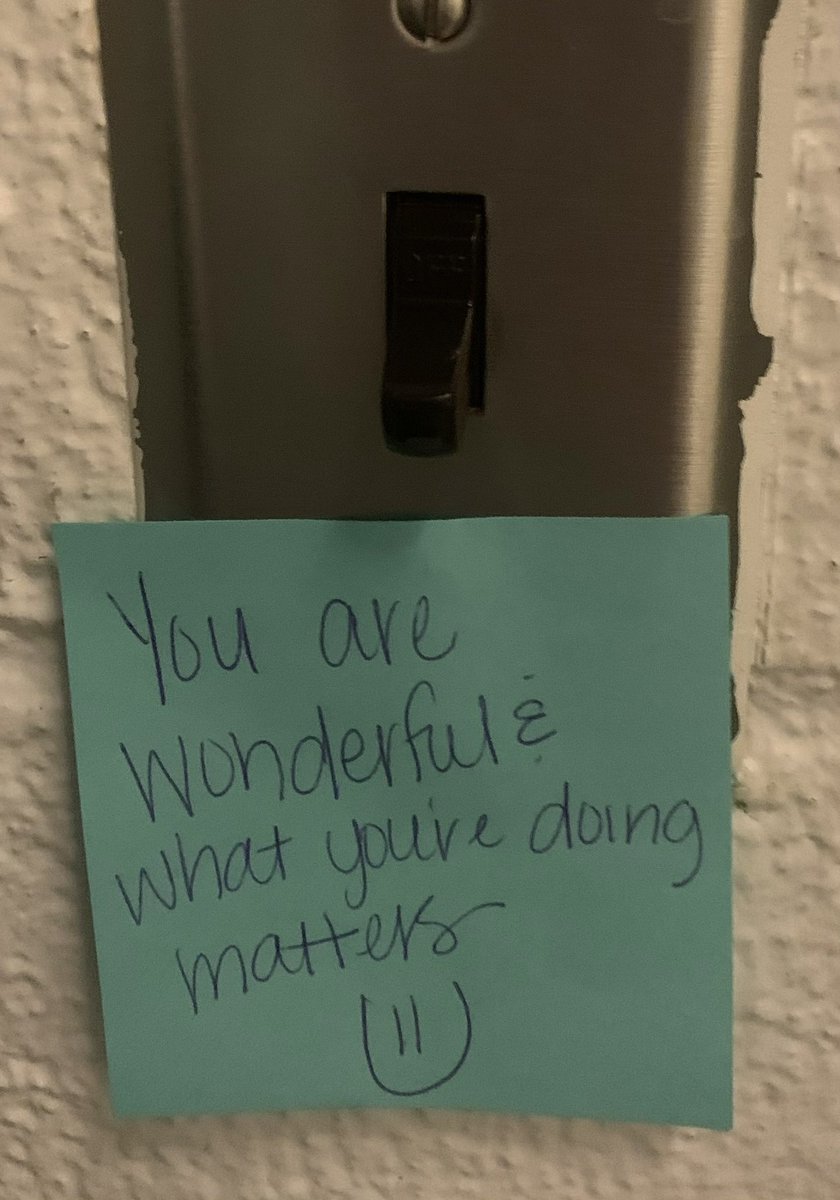 You are
Wonderful &
what you're doing
matters